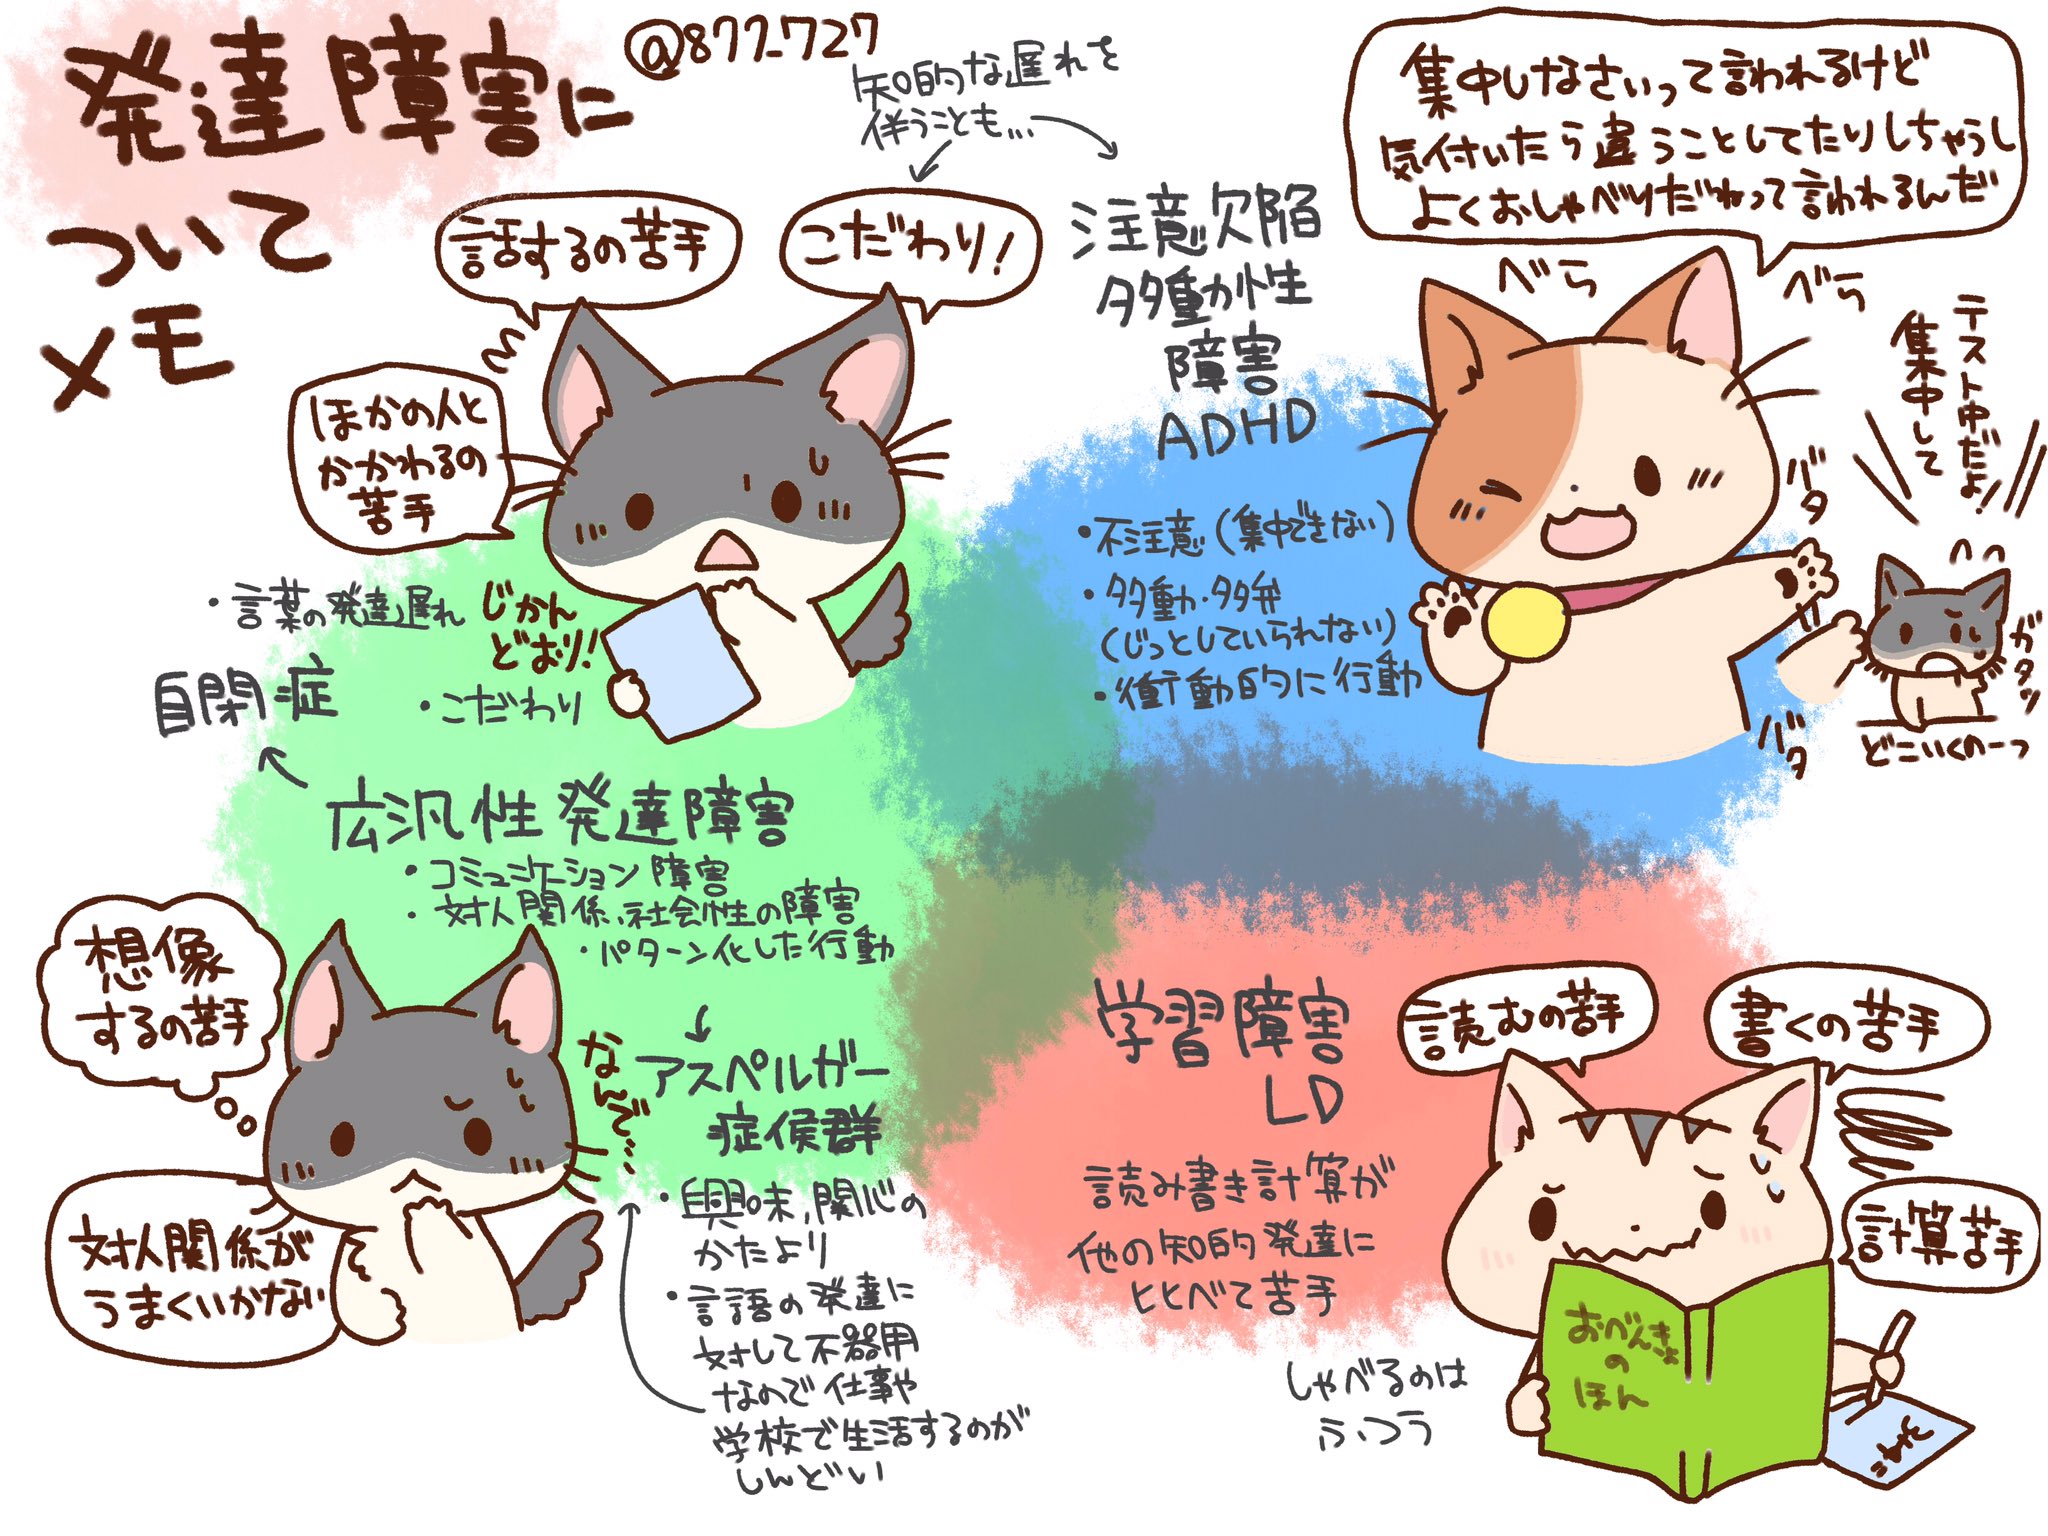 発達障害に
ついて
メモ
@877_727
知的な遅れを
伴うことも…
話するの苦手
こだわり!
ほかの人と
かかわるの
苦手
・言葉の発達遅れ
じかん
どおり!
・こだわり
自閉症
広汎性発達障害
・コミュニケーション障害
・対人関係、社会性の障害
・パターン化した行動
想像
するの苦手
対人関係が
うまくいかない
なんで…
アスペルガー
症候群
・興味、関心の
かたより
・言語の発達に
対して不器用
なので仕事や
学校で生活するのが
しんどい
注意欠陥
多動性
障害
ADHD
・不注意(集中できない)
・多動・多弁
(じっとしていられない)
・衝動的に行動
集中しなさいって言われるけど
気付いたら違うことしてたりしちゃうし
よくおしゃべりだねって言われるんだ
べら
べら
テスト中だよ!
集中して
バタ
バタ
ガタッ
どこいくのーっ
学習障害
LD
読み書き計算が
他の知的発達に
ととべて苦手
しゃべるのは
ふつう
読むの苦手
書くの苦手
計算苦手
おべんきょ
の
ほん